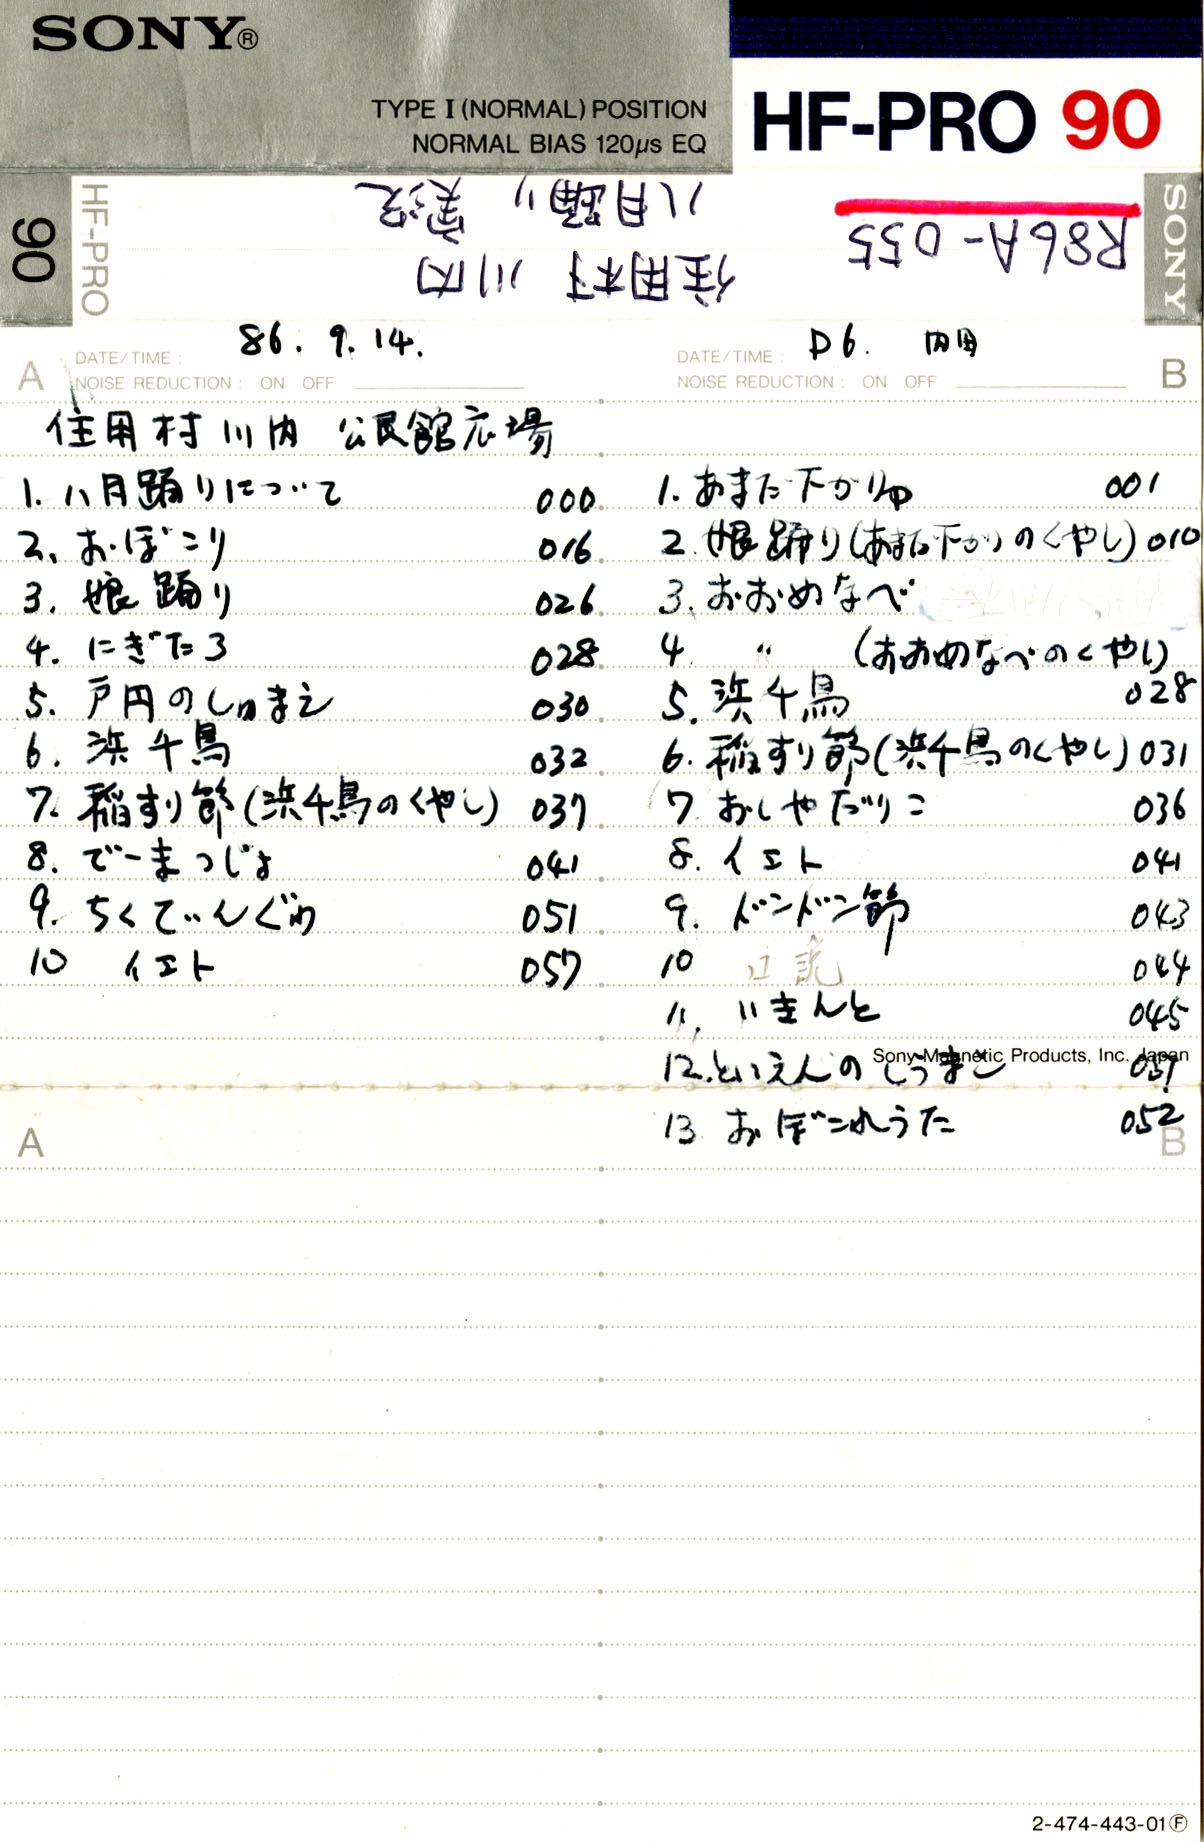 SONY®
TYPE I (NORMAL) POSITION
NORMAL BIAS 120μs EQ
HF-PRO 90
90
HF-PRO
八月踊り 実況
住用村 川内
R86A-055
SONY
A
DATE/TIME : 86. 9. 14.
NOISE REDUCTION : ON OFF
DATE/TIME : D6. 内田
NOISE REDUCTION : ON OFF
B
住用村川内 公民館広場
1. 八月踊りについて 000
2. おぼこり 016
3. 娘踊り 026
4. にぎたろ 028
5. 戸円のしゅまえ 030
6. 浜千鳥 032
7. 稲すり節(浜千鳥のくやし) 037
8. でーまつじょ 041
9. ちくてぃんぐゎ 051
10 イエト 057
1. あまだ下がりゅ 001
2. 娘踊り(あまだ下がりのくやし) 010
3. おおめなべ
4. 〃 (おおめなべのくやし)
5. 浜千鳥 028
6. 稲すり節(浜千鳥のくやし) 031
7 おしゃだりこ 036
8. イエト 041
9. ドンドン節 043
10 口説 044
11. いきんと 045
Sony Magnetic Products, Inc. Japan
12. といえんの
13 おぼこれうた 052
A
B
2-474-443-01Ⓕ